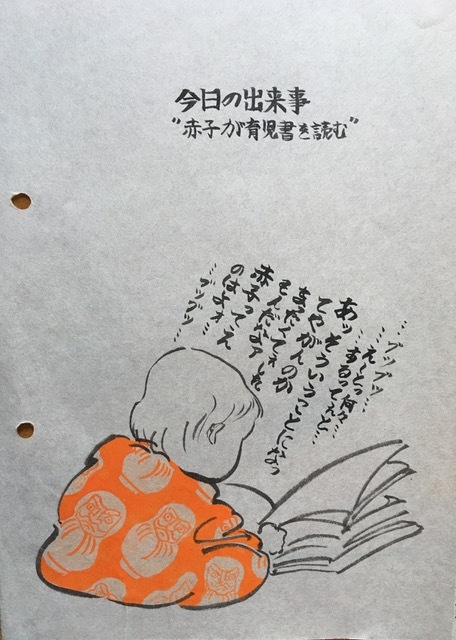 今日の出来事
"赤子が育児書を読む"
…ブツブツ…
…えーとっ何々…
…するってえと…
あッそういうことになっ
てやがんのか
まったくてぇ
もんだなァー
赤子ってえ
のはよォ…
…ブツブツ…